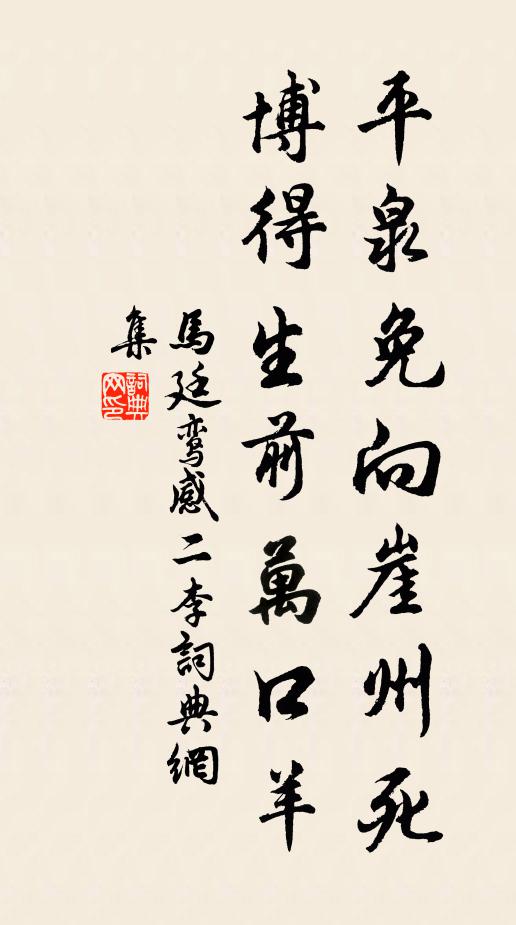 平泉免向崖州死
博得生前萬口羊
馬廷鸾感二李詞典網
集
詞典
网印